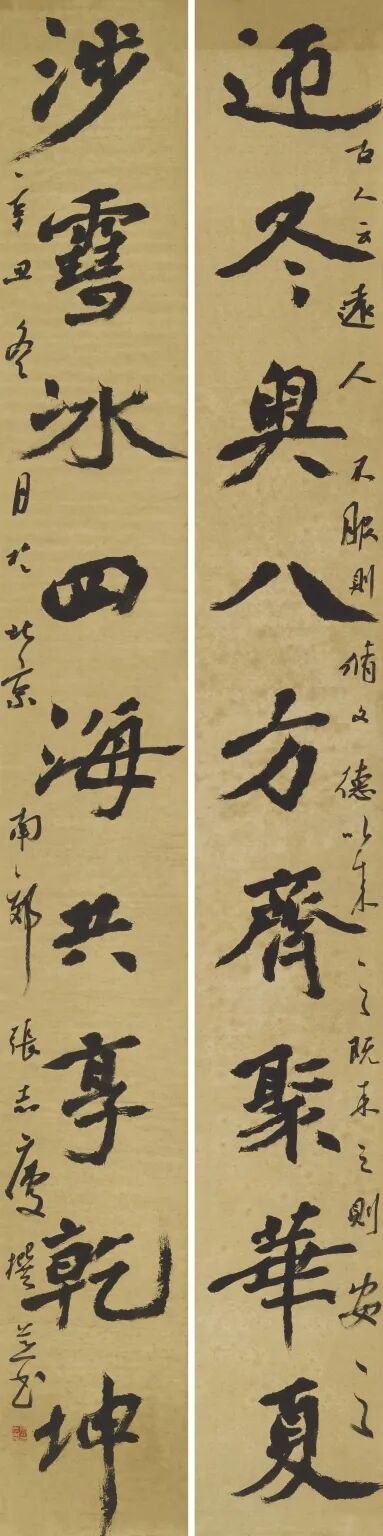 迎冬奧八方齊聚華夏
涉雪冰四海共享乾坤
古人云遠人不服則脩文德以来之既来之則安之
辛丑冬月於北京南鄭張志慶撰並书